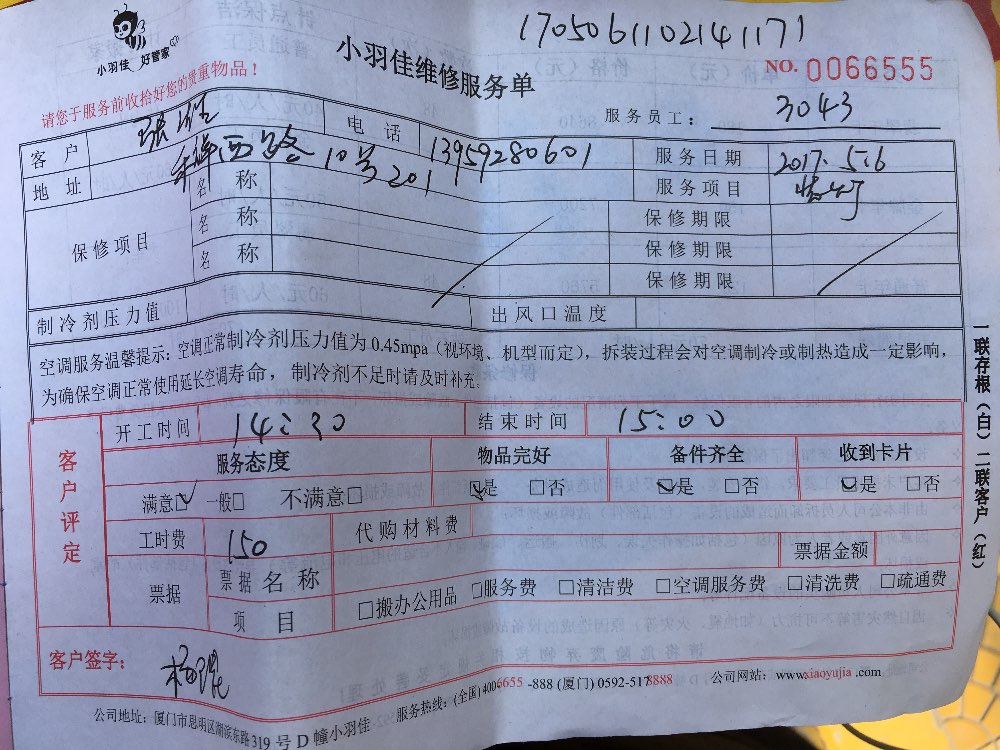 17050611021411171
小羽佳 好管家
小羽佳维修服务单
NO. 0066555
请您于服务前收拾好您的贵重物品！
服务员工： 3043
客户 张 电话 13959280601 服务日期 2017.5.6
地址 西路10号201 服务项目 灯
保修项目 名称 保修期限
名称 保修期限
名称 保修期限
制冷剂压力值 出风口温度
空调服务温馨提示：空调正常制冷剂压力值为0.45mpa（视环境、机型而定），拆装过程会对空调制冷或制热造成一定影响，
为确保空调正常使用延长空调寿命，制冷剂不足时请及时补充。
开工时间 14:30 结束时间 15:00
客户评定
服务态度 物品完好 备件齐全 收到卡片
满意☑ 一般□ 不满意□ ☑是 □否 ☑是 □否 ☑是 □否
工时费 150 代购材料费
票据 票据名称 票据金额
项目 □搬办公用品 □服务费 □清洁费 □空调服务费 □清洗费 □疏通费
客户签字： 杨
公司地址：厦门市思明区湖滨东路319号D幢小羽佳 服务热线：(全国) 4006655-888 (厦门) 0592-5178888 公司网站：www.xiaoyujia.com
一联存根（白）二联客户（红）